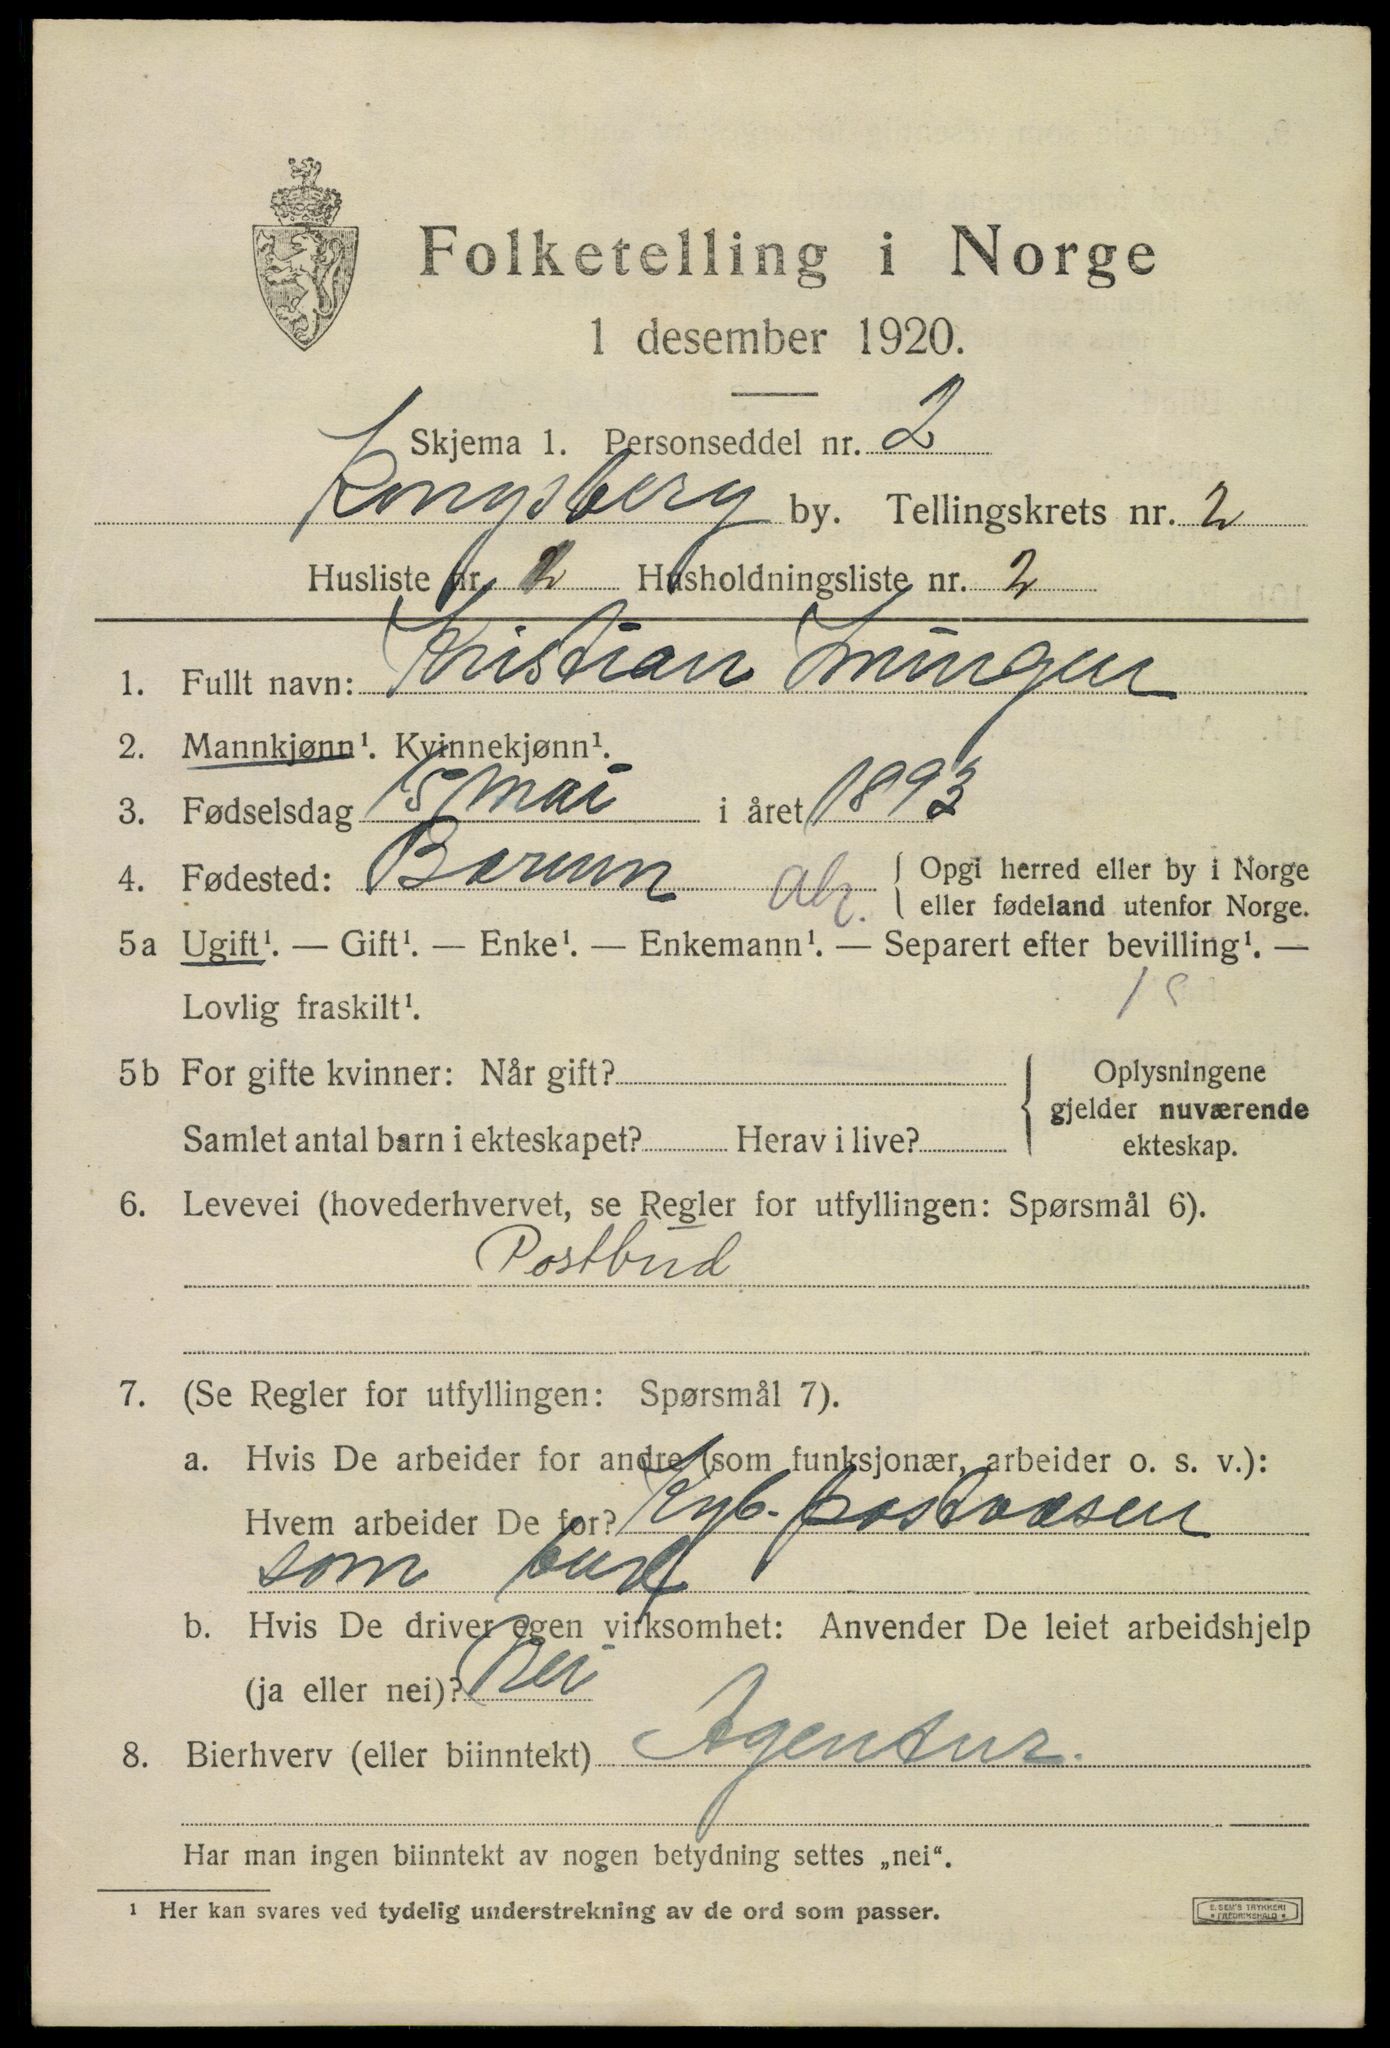 Folketelling i Norge
1 desember 1920.
Skjema 1. Personseddel nr. 2
Kongsberg by. Tellingskrets nr. 2
Husliste nr. 2 Husholdningsliste nr. 2
1. Fullt navn: Kristian
2. Mannkjønn¹. Kvinnekjønn¹.
3. Fødselsdag 15 mai i året 1893
4. Fødested: Bærum
{ Opgi herred eller by i Norge
eller fødeland utenfor Norge.
5a Ugift¹. — Gift¹. — Enke¹. — Enkemann¹. — Separert efter bevilling¹. —
Lovlig fraskilt¹.
5b For gifte kvinner: Når gift?
Samlet antal barn i ekteskapet? Herav i live?
{ Oplysningene
gjelder nuværende
ekteskap.
6. Levevei (hovederhvervet, se Regler for utfyllingen: Spørsmål 6).
Postbud
7. (Se Regler for utfyllingen: Spørsmål 7).
a. Hvis De arbeider for andre (som funksjonær, arbeider o. s. v.):
Hvem arbeider De for? Kgb. postvæsen
som bud
b. Hvis De driver egen virksomhet: Anvender De leiet arbeidshjelp
(ja eller nei)? Nei
8. Bierhverv (eller biinntekt) Agentur.
Har man ingen biinntekt av nogen betydning settes „nei“.
¹ Her kan svares ved tydelig understrekning av de ord som passer.
E. SEM'S TRYKKERI
• FREDRIKSHALD •